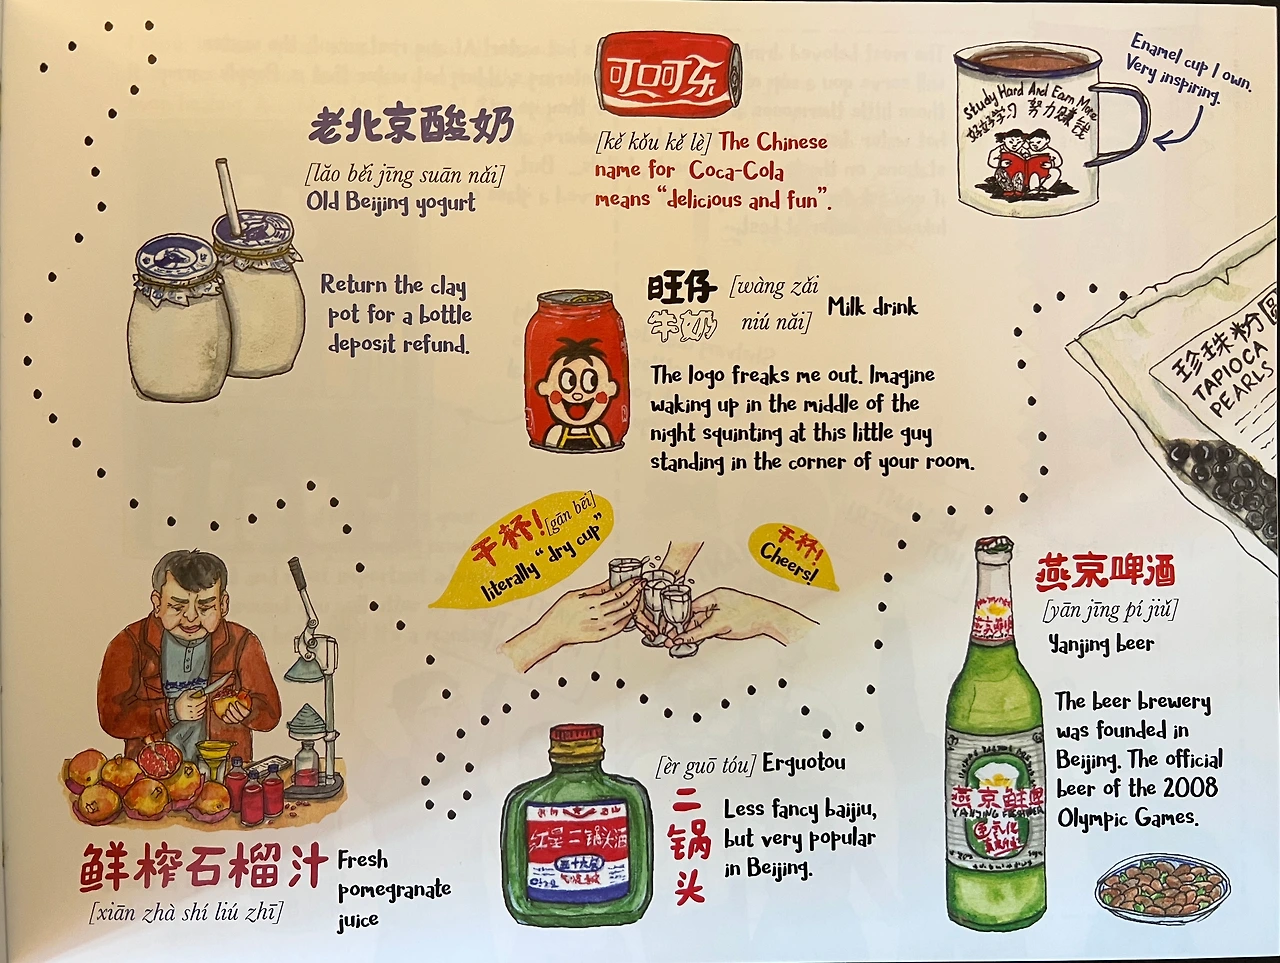 老北京酸奶
[lǎo běi jīng suān nǎi]
Old Beijing yogurt
Return the clay
pot for a bottle
deposit refund.
可口可乐
[kě kǒu kě lè] The Chinese
name for Coca-Cola
means “delicious and fun”.
Study Hard And Earn More
好好学习 努力赚钱
Enamel cup I own.
Very inspiring.
旺仔
牛奶
[wàng zǎi
niú nǎi]
Milk drink
The logo freaks me out. Imagine
waking up in the middle of the
night squinting at this little guy
standing in the corner of your room.
珍珠粉圆
TAPIOCA
PEARLS
干杯! [gān bēi]
literally “dry cup”
干杯!
Cheers!
燕京啤酒
[yān jīng pí jiǔ]
Yanjing beer
The beer brewery
was founded in
Beijing. The official
beer of the 2008
Olympic Games.
燕京鲜啤
鲜榨石榴汁
[xiān zhà shí liú zhī]
Fresh
pomegranate
juice
红星二锅头酒
[èr guō tóu] Erguotou
二
锅
头
Less fancy baijiu,
but very popular
in Beijing.